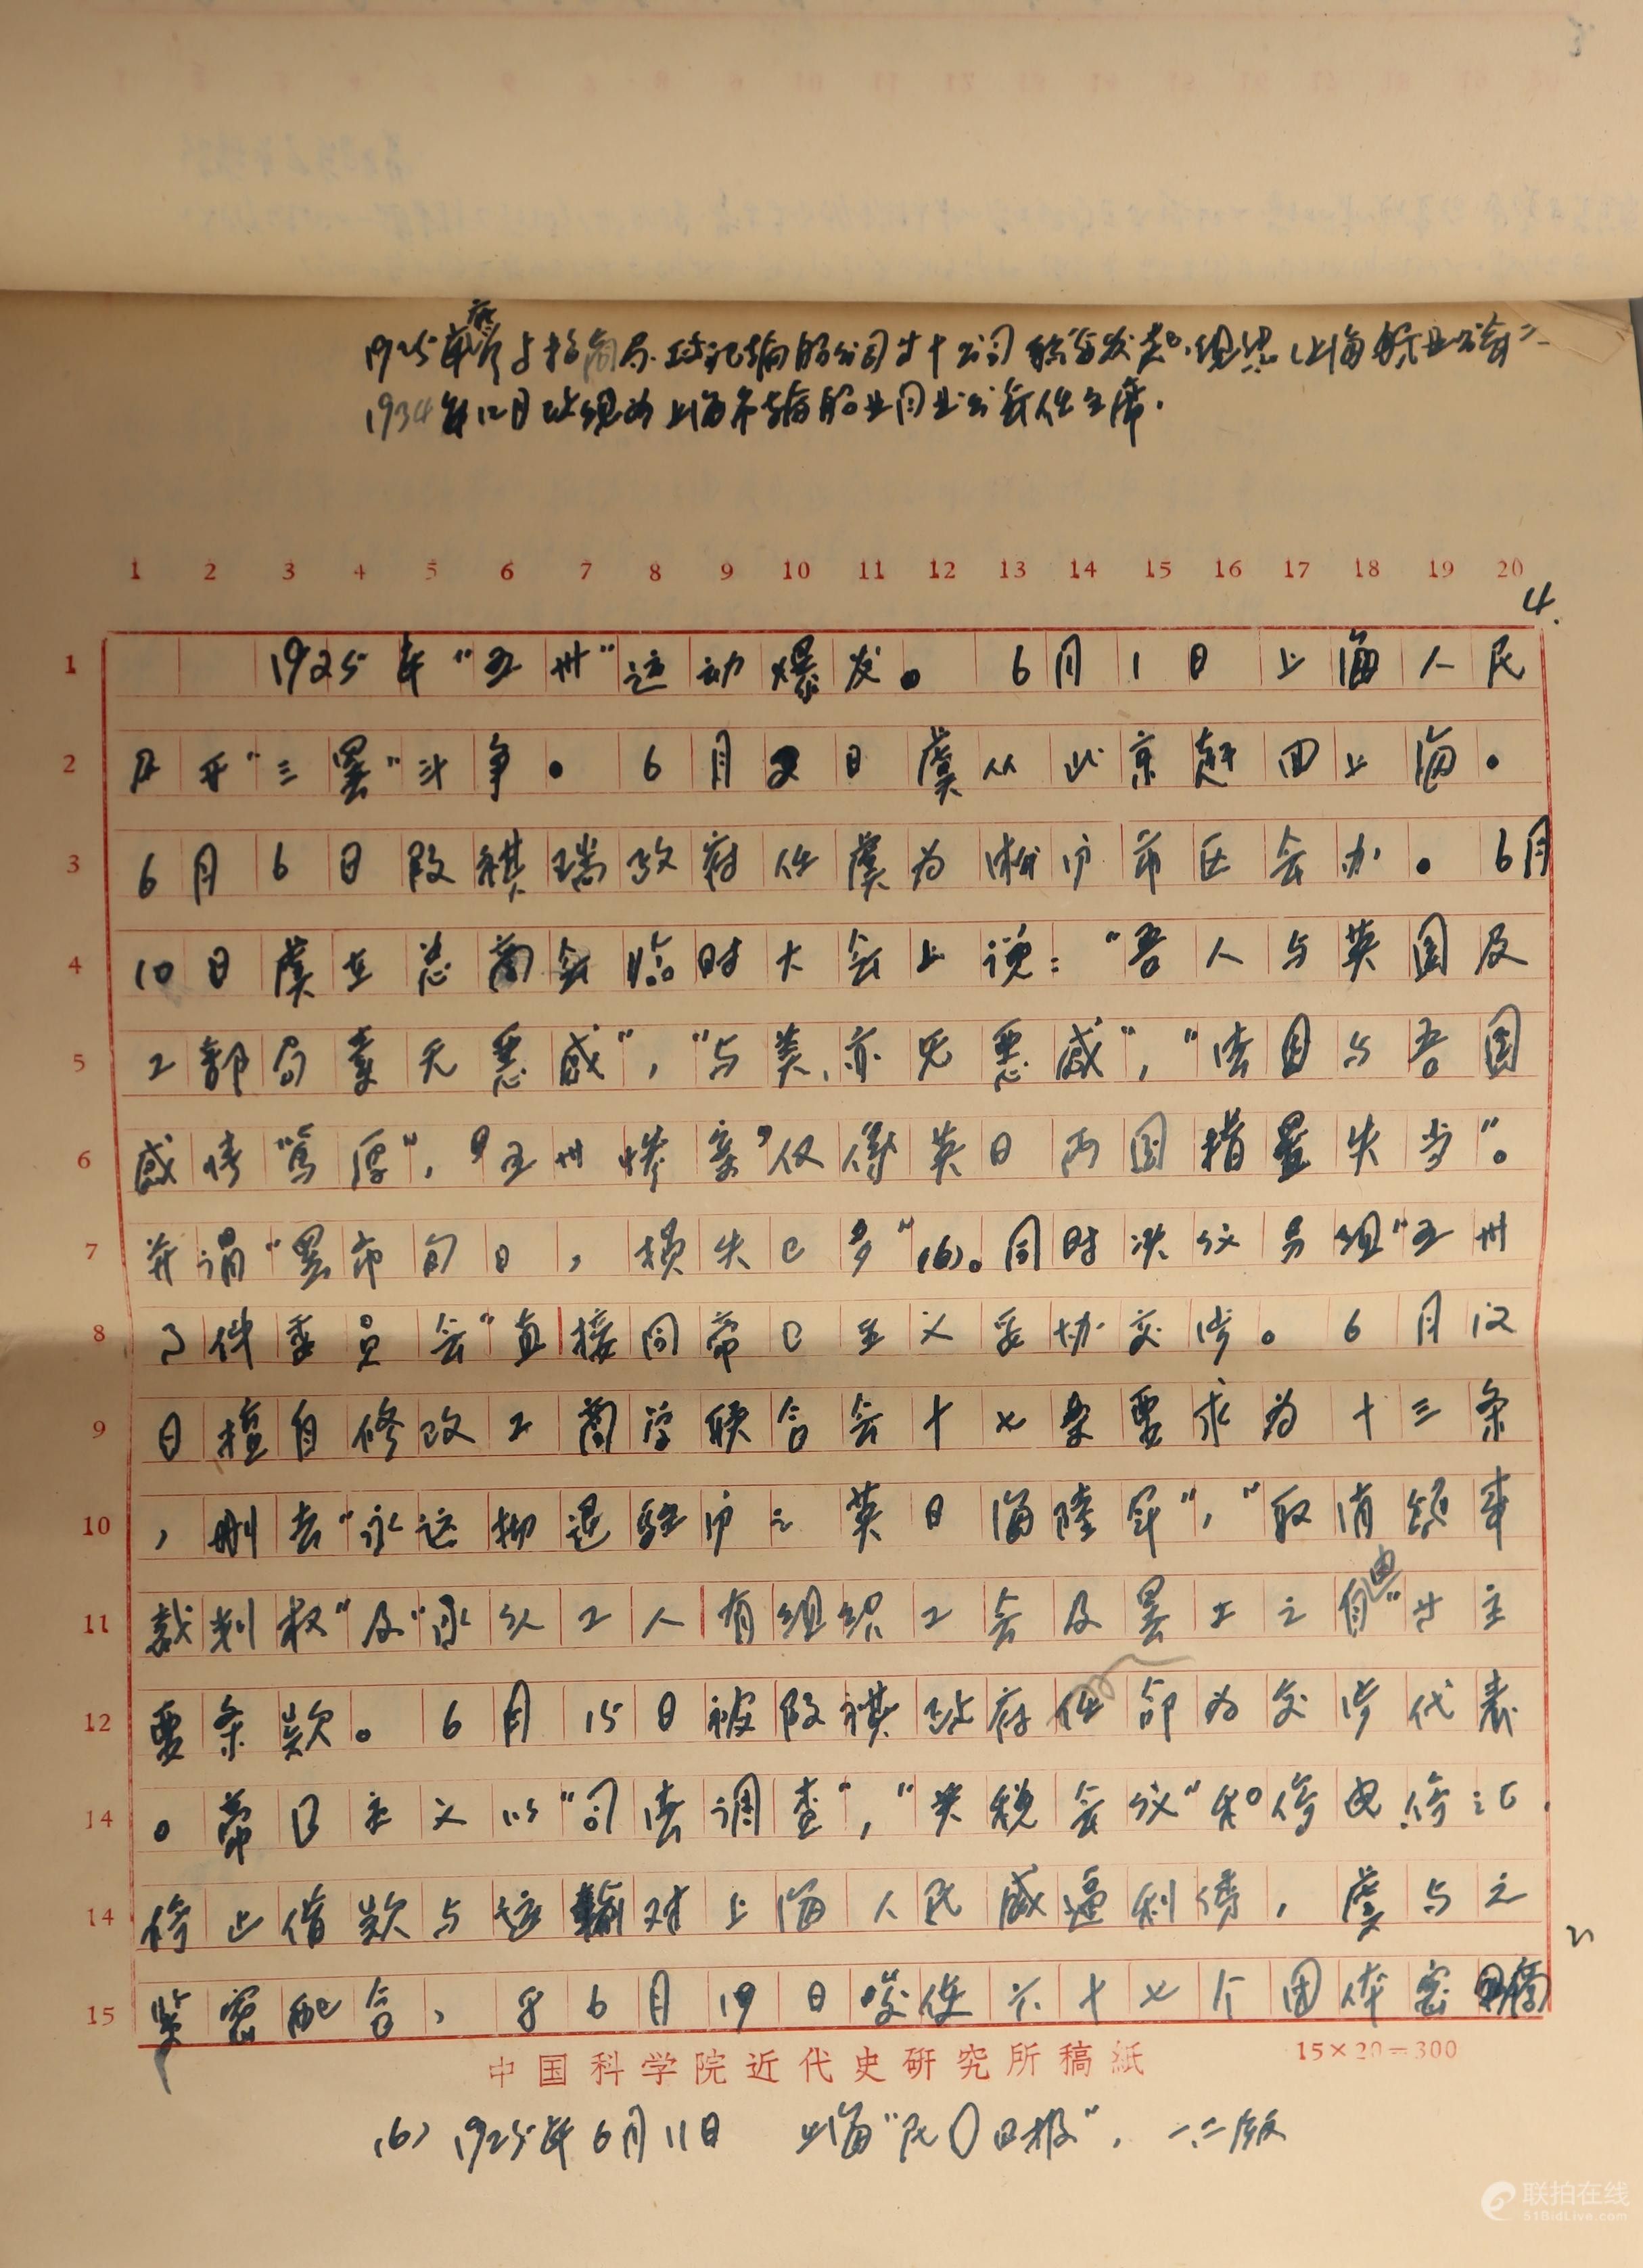 1925年虞与招商局、三北轮船公司等十公司联合发起组织“上海航业公会”
1934年12月改组为上海市轮船业同业公会任主席.
1 2 3 4 5 6 7 8 9 10 11 12 13 14 15 16 17 18 19 20
4.
1 1925年“五卅”运动爆发。6月1日上海人民
2 展开“三罢”斗争。6月2日虞从北京赶回上海。
3 6月6日段祺瑞政府任虞为淞沪市区会办。6月
4 10日虞在总商会临时大会上说：“吾人与英国及
5 工部局素无恶感”，“与美、亦无恶感”，“法国与吾国
6 感情“笃厚”，“五卅惨案”仅得英日两国措置失当”。
7 并谓“罢市旬日，损失已多”(6)。同时决议另组“五卅
8 事件委员会”直接同帝国主义妥协交涉。6月12
9 日擅自修改工商学联合会十七条要求为十三条
10 ，删去“永远撤退驻沪之英日海陆军”，“取消领事
11 裁判权”及“承认工人有组织工会及罢工之自由”等主
12 要条款。6月15日被段祺政府任命为交涉代表
14 。帝国主义以“司法调查”，“关税会议”和停电、停汇、
14 停止借款与运输对上海人民威逼利诱，虞与之
15 紧密配合，于6月19日唆使六十七个团体密
中国科学院近代史研究所稿紙 15×20=300
(6) 1925年6月11日 上海“民国日报”，一.二版
联拍在线
51BidLive.com